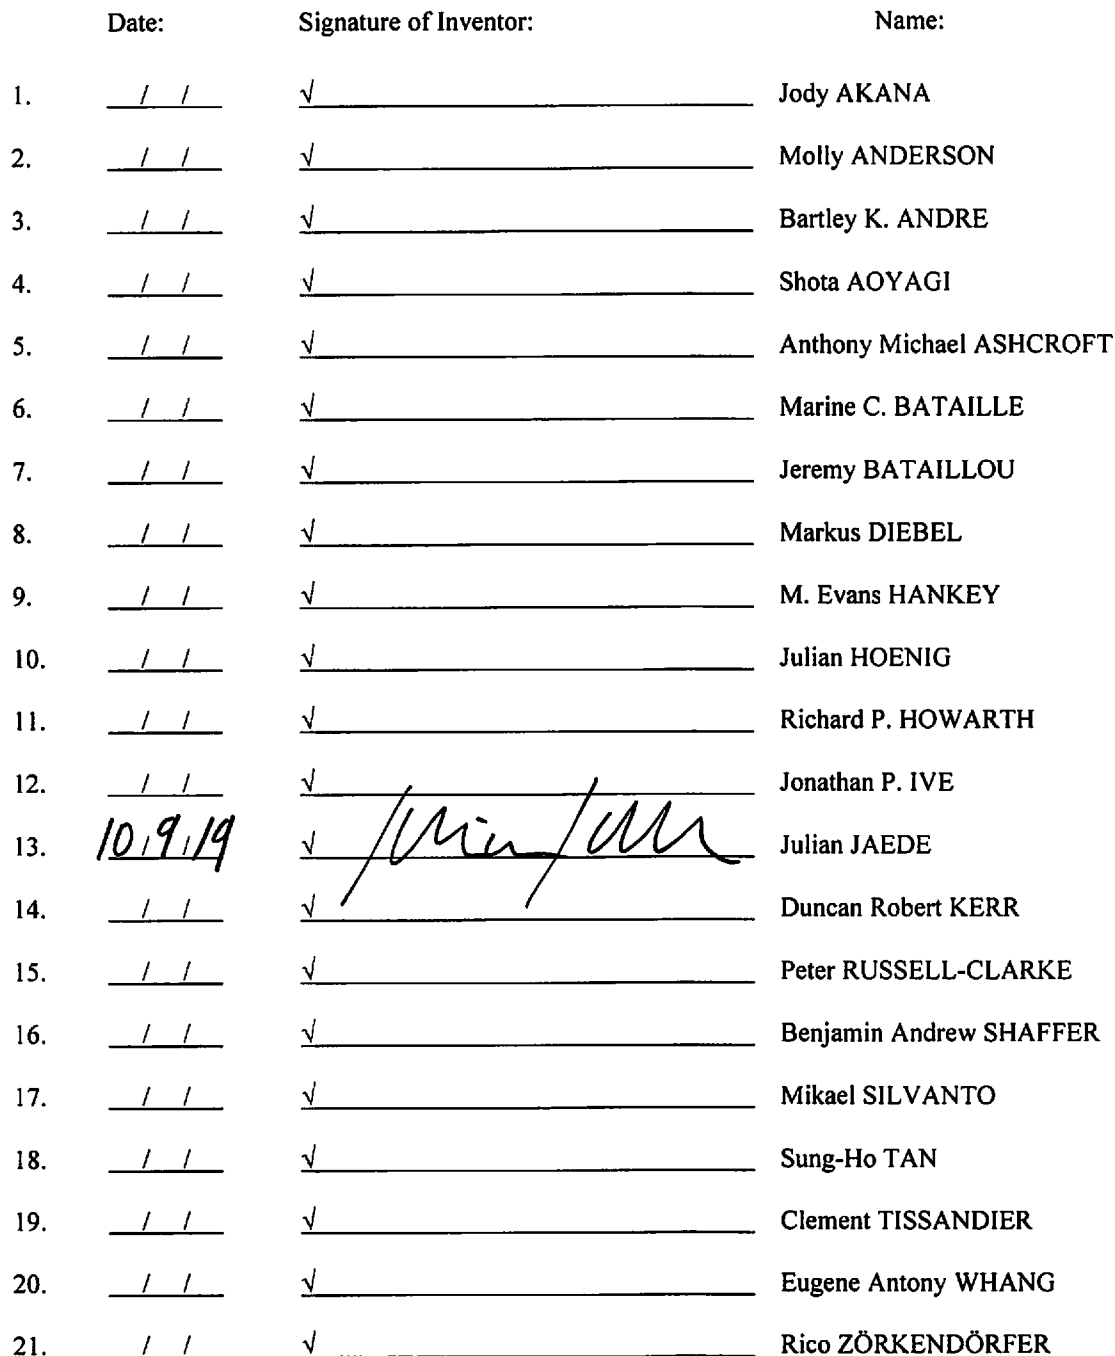 Date: Signature of Inventor: Name:
1. / / √ Jody AKANA
2. / / √ Molly ANDERSON
3. / / √ Bartley K. ANDRE
4. / / √ Shota AOYAGI
5. / / √ Anthony Michael ASHCROFT
6. / / √ Marine C. BATAILLE
7. / / √ Jeremy BATAILLOU
8. / / √ Markus DIEBEL
9. / / √ M. Evans HANKEY
10. / / √ Julian HOENIG
11. / / √ Richard P. HOWARTH
12. / / √ Jonathan P. IVE
13. 10/9/19 √ Julian JAEDE
14. / / √ Duncan Robert KERR
15. / / √ Peter RUSSELL-CLARKE
16. / / √ Benjamin Andrew SHAFFER
17. / / √ Mikael SILVANTO
18. / / √ Sung-Ho TAN
19. / / √ Clement TISSANDIER
20. / / √ Eugene Antony WHANG
21. / / √ Rico ZÖRKENDÖRFER